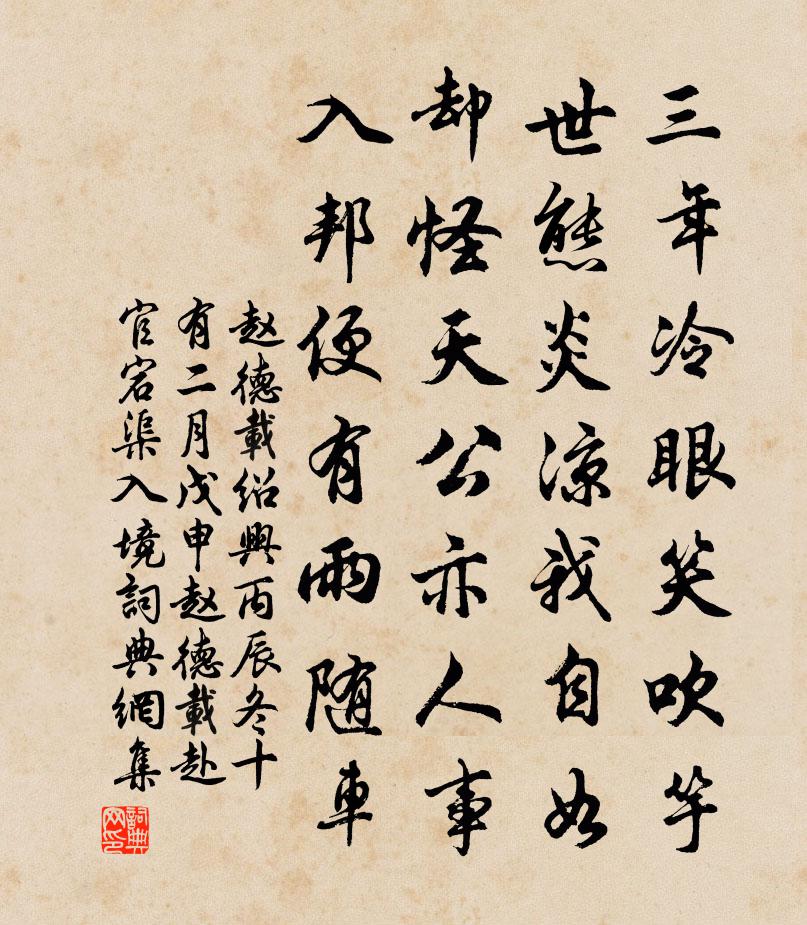 三年冷眼笑吹竽
世態炎凉我自如
却怪天公亦人事
入邦便有雨随車
赵德載绍興丙辰冬十
有二月戊申赵德載赴
官宕渠入境詞典網集
詞典网印